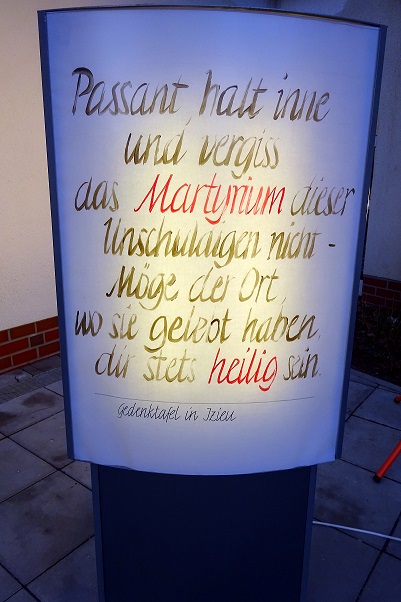 Passant, halt inne
und vergiss
das Martyrium dieser
Unschuldigen nicht -
Möge der Ort,
wo sie gelebt haben,
dir stets heilig sein.
Gedenktafel in Izieu